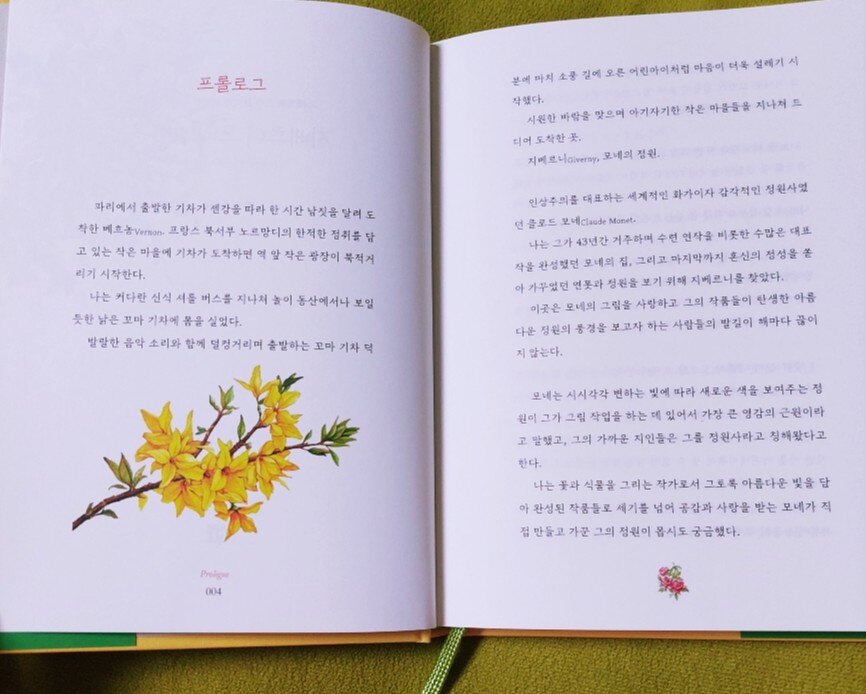 프롤로그
파리에서 출발한 기차가 센강을 따라 한 시간 남짓을 달려 도
착한 베흐농Vernon. 프랑스 북서부 노르망디의 한적한 정취를 담
고 있는 작은 마을에 기차가 도착하면 역 앞 작은 광장이 북적거
리기 시작한다.
나는 커다란 신식 셔틀 버스를 지나쳐 놀이 동산에서나 보일
듯한 낡은 꼬마 기차에 몸을 실었다.
발랄한 음악 소리와 함께 덜컹거리며 출발하는 꼬마 기차 덕
Prologue
004
분에 마치 소풍 길에 오른 어린아이처럼 마음이 더욱 설레기 시
작했다.
시원한 바람을 맞으며 아기자기한 작은 마을들을 지나쳐 드
디어 도착한 곳.
지베르니Giverny, 모네의 정원.
인상주의를 대표하는 세계적인 화가이자 감각적인 정원사였
던 클로드 모네Claude Monet.
나는 그가 43년간 거주하며 수련 연작을 비롯한 수많은 대표
작을 완성했던 모네의 집, 그리고 마지막까지 혼신의 정성을 쏟
아 가꾸었던 연못과 정원을 보기 위해 지베르니를 찾았다.
이곳은 모네의 그림을 사랑하고 그의 작품들이 탄생한 아름
다운 정원의 풍경을 보고자 하는 사람들의 발길이 해마다 끊이
지 않는다.
모네는 시시각각 변하는 빛에 따라 새로운 색을 보여주는 정
원이 그가 그림 작업을 하는 데 있어서 가장 큰 영감의 근원이라
고 말했고, 그의 가까운 지인들은 그를 정원사라고 칭해왔다고
한다.
나는 꽃과 식물을 그리는 작가로서 그토록 아름다운 빛을 담
아 완성된 작품들로 세기를 넘어 공감과 사랑을 받는 모네가 직
접 만들고 가꾼 그의 정원이 몹시도 궁금했다.